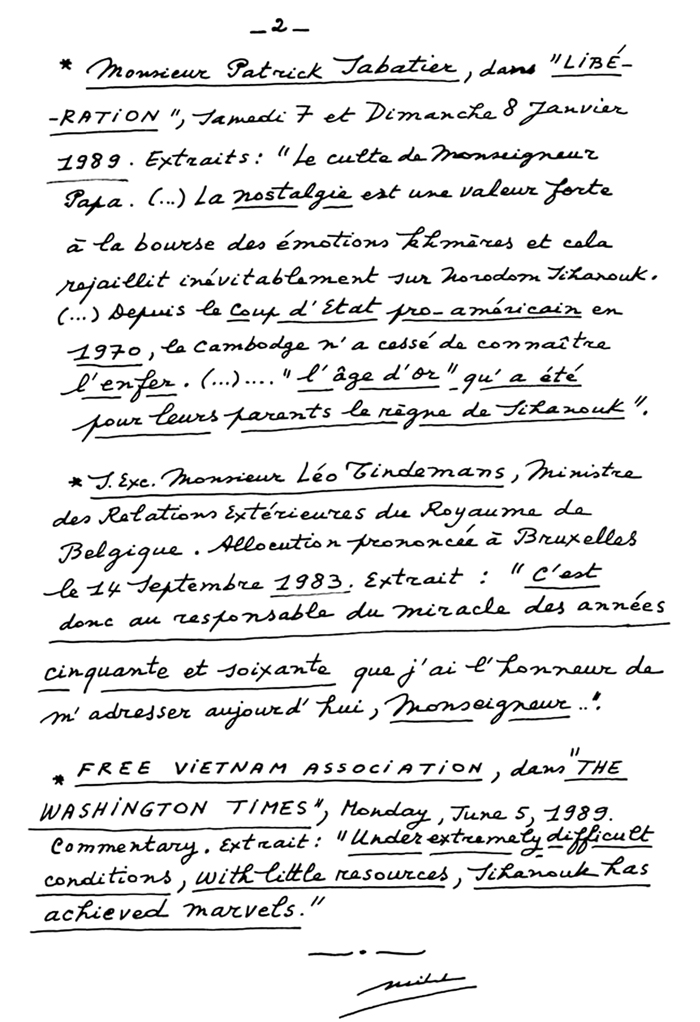 _2_
* Monsieur Patrick Sabatier, dans "LIBÉ-
-RATION", Samedi 7 et Dimanche 8 Janvier
1989. Extraits : "Le culte de Monseigneur
Papa. (...) La nostalgie est une valeur forte
à la bourse des émotions khmères et cela
rejaillit inévitablement sur Norodom Sihanouk.
(...) Depuis le Coup d'Etat pro-américain en
1970, le Cambodge n'a cessé de connaître
l'enfer. (...).... "l'âge d'or" qu'a été
pour leurs parents le règne de Sihanouk".
* S. Exc. Monsieur Léo Tindemans, Ministre
des Relations Extérieures du Royaume de
Belgique. Allocution prononcée à Bruxelles
le 14 Septembre 1983. Extrait : "C'est
donc au responsable du miracle des années
cinquante et soixante que j'ai l'honneur de
m'adresser aujourd'hui, Monseigneur..".
* FREE VIETNAM ASSOCIATION, dans "THE
WASHINGTON TIMES", Monday, June 5, 1989.
Commentary. Extrait : "Under extremely difficult
conditions, with little resources, Sihanouk has
achieved marvels."